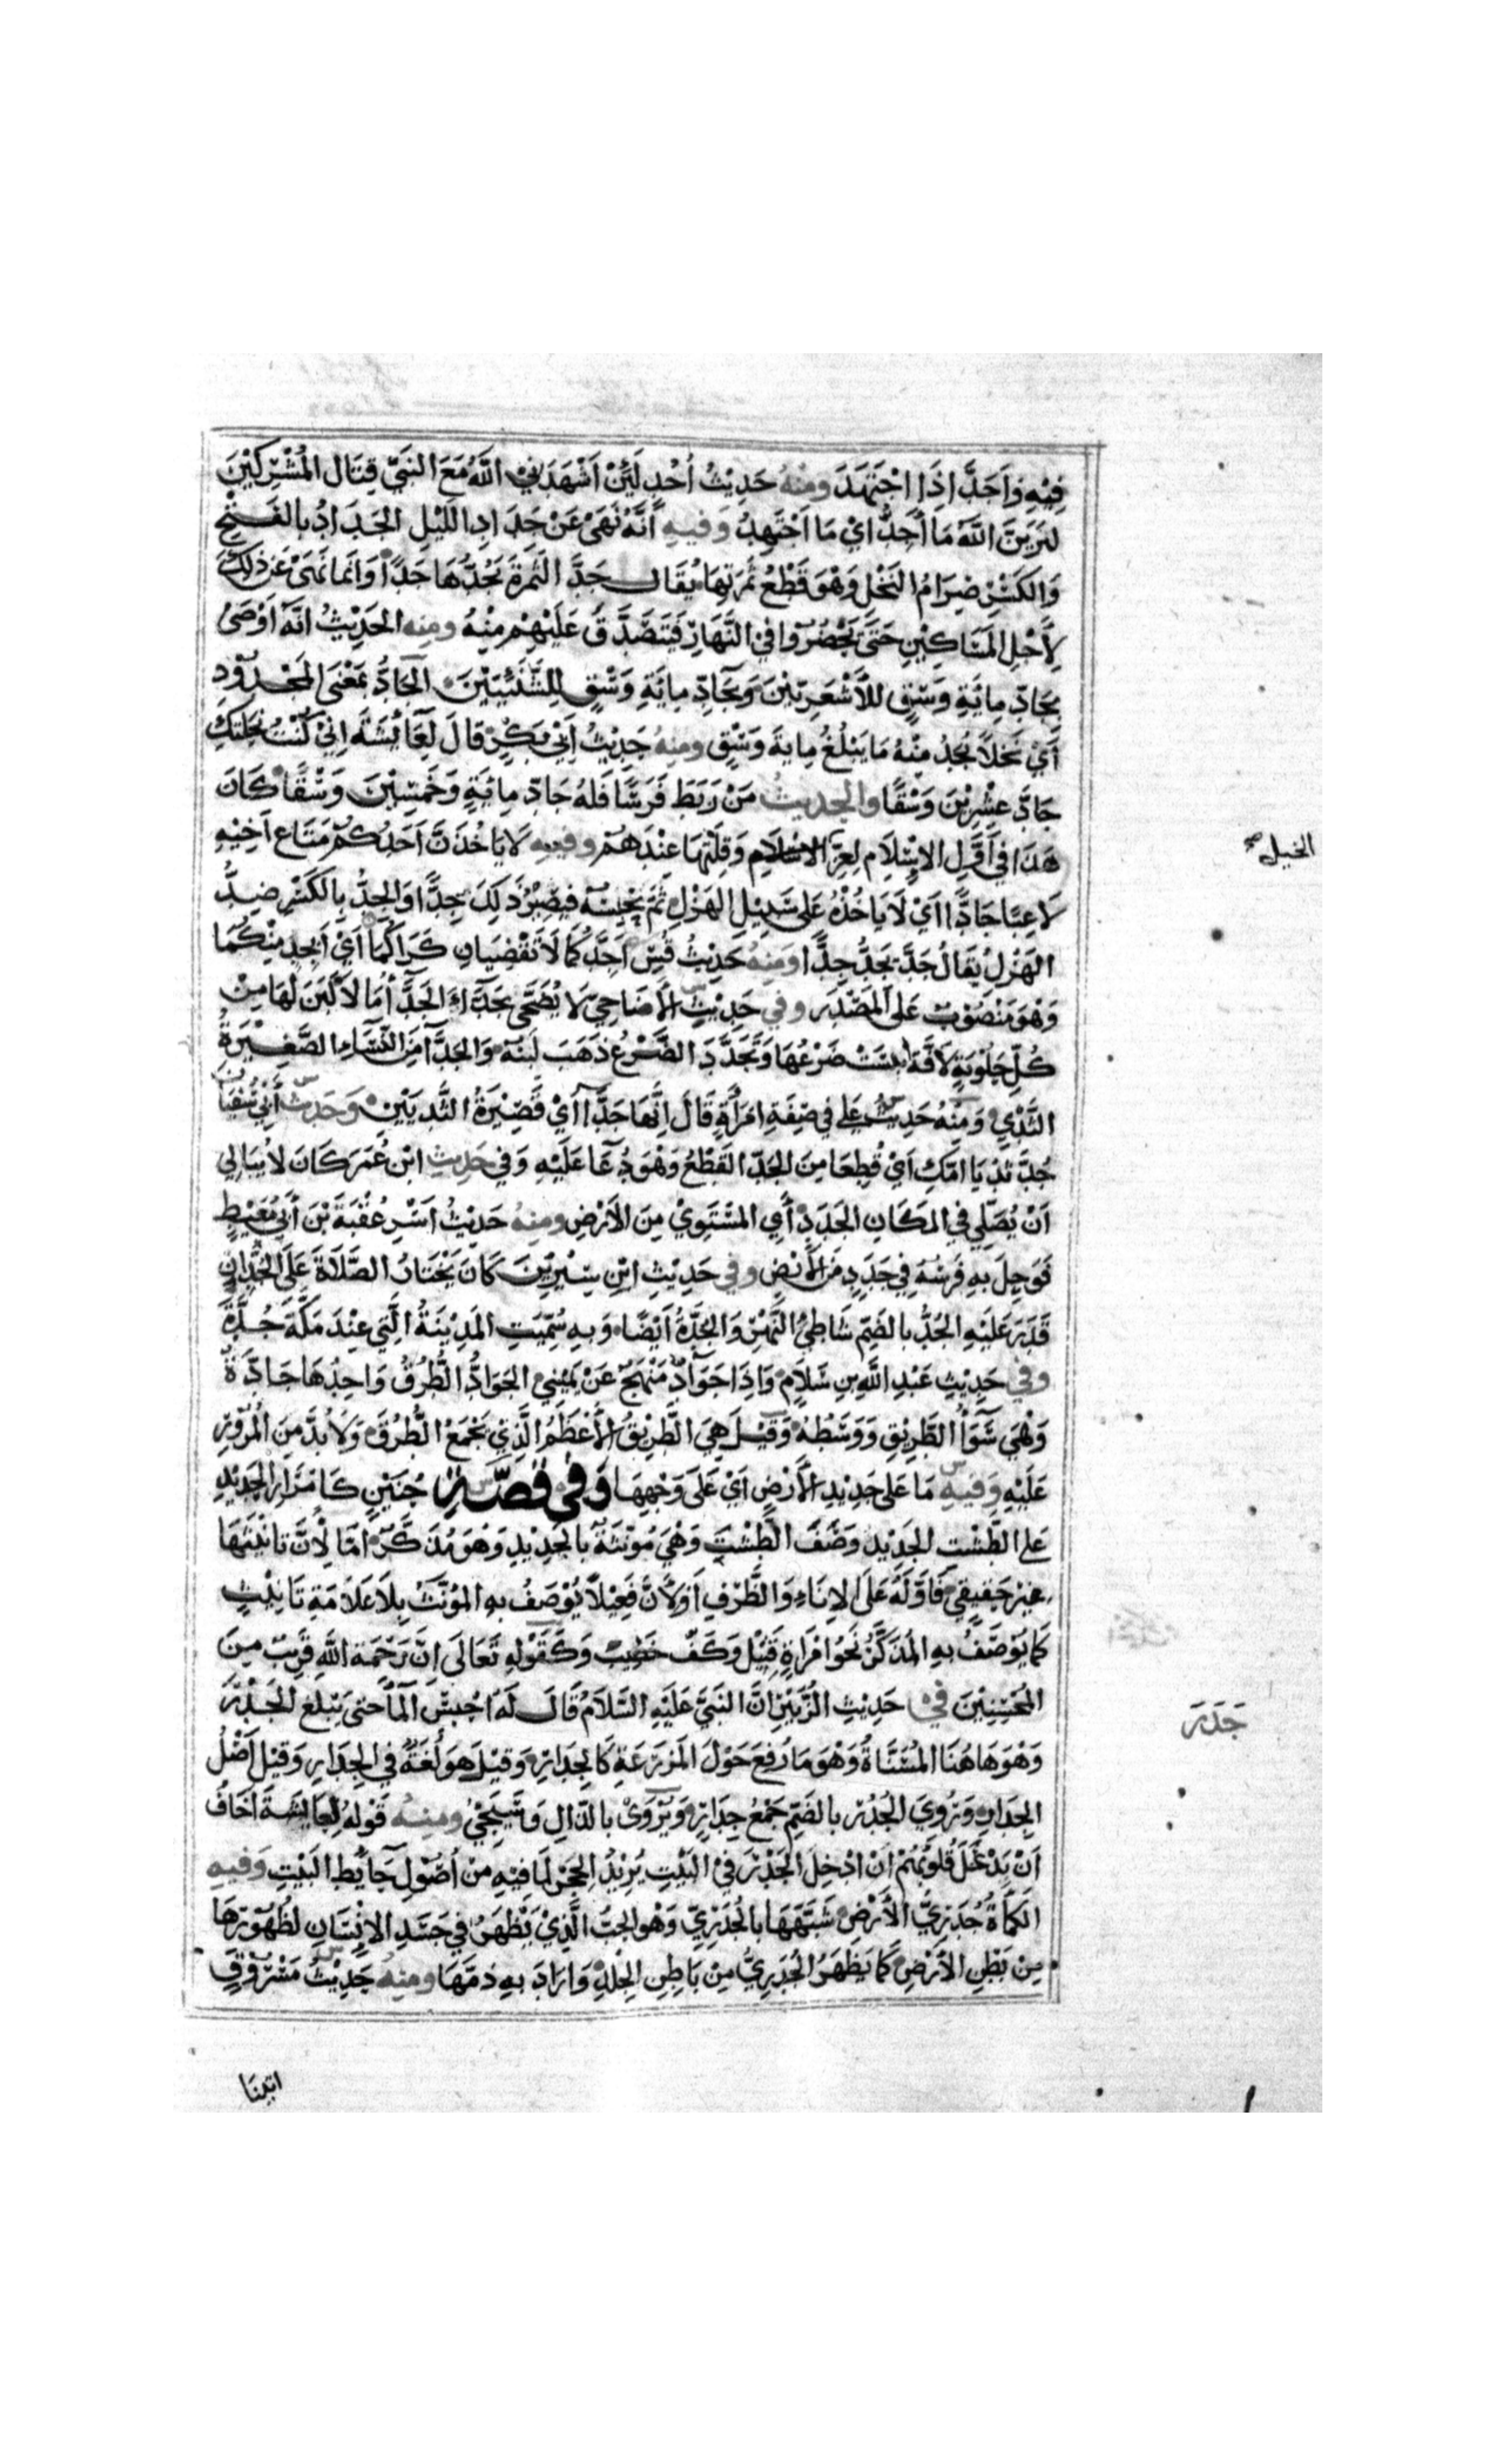 فِيْهِ وَاَجَدَّ اِذَا اجْتَهَدَ ومنهُ حَدِيْثُ اُحُدٍ لَئِنْ اَشْهَدَنِي اللّٰهُ مَعَ النَبيِّ قِتَالَ المُشْرِكِيْنَ
لَيَرَيَنَّ اللّٰهُ مَا اُجِدُّ ايْ مَا اَجْتَهِدُ وَفيهِ اَنَّهُ نَهَىٰ عَنْ جَدَادِ اللَيْلِ الجَدَادُ بالفَتْحِ
وَالكَسْرِ صِرَامُ النَخْلِ وَهْوَ قَطْعُ ثَمَرَتِهَا يُقَالُ جَدَّ الثَمرَةَ يَجُدُّهَا جَدًّا وَاَنَما نَهىٰ عَن ذٰلِكَ
لِأَجْلِ المَسَاكِيْنِ حَتَّى يَحْضُرُوا في النَّهَارِ فَيَتَصَدَّقَ عَلَيْهِمْ مِنْهُ ومنه الحَدِيْثُ انَّهُ اَوْصَىٰ
بِجَادِّ مِائَةِ وَسْقٍ للأَشْعَرِيّيْنَ وَبِجَادِّ مِايَةِ وَسْقٍ لِلشَّنَئِيّيْنَ الجَادُّ بِمَعْنَى المَجْدُوْدِ
أَيْ نَخلاً يُجَدُّ مِنْهُ مَا يَبْلُغُ مِايةَ وَسْقٍ ومنهُ حَدِيْثُ اَبِيْ بَكْرٍ قَالَ لِعَائِشَةَ اِنِّي كُنْتُ نَحَلْتُكِ
جَادَّ عِشْرِيْنَ وَسْقًا والحديثُ مَنْ رَبَطَ فَرَسًا فَلَهُ جَادّ مِائَةٍ وَخَمْسِيْنَ وَسْقًا كَانَ
هَذا في اَوَّلِ الاِسْلَامِ لِعِزّ الاسلام وَقِلَّتِهَا عِنْدَهُمْ وفيه لَا يَاخُذَنَّ اَحَدُكُمْ مَتَاعَ اَخِيْهِ
الخيل صح
لَاعِبًا جَادًّا ايْ لَا يَاخُذْهُ عَلى سَبِيْلِ الهَزْلِ ثُمَّ يَحْبِسُهُ فيَصِيْرُ ذَلِكَ جِدًّا وَالجِدُّ بِالكَسْرِ ضِدُّ
الهَزْلِ يُقَالُ جَدَّ يَجِدُّ جِدًّا ومنهُ حَدِيْثُ قُسٍّ اَجِدَّكُمَا لَا تَقْضِيَانِ كَرَاكُمَا ايْ اَبِجِدٍّ مِنْكُمَا
وَهْوَ مَنْصُوْبٌ عَلى المَصْدَر وفي حَدِيْثِ الأَضَاحِيّ لَا يُضَحَّى بِجَدَّاءَ الجَدَّاءُ مَا لَا لَبَنَ لَهَا مِنْ
كُلِّ حَلُوْبَةٍ لآفَةٍ اَيْبَسَتْ ضَرْعُهَا وَتَجَدَّدَ الضَّرْعُ ذَهَبَ لَبَنُهُ وَالجَدَّآءُ مِنَ النِّسَآءِ الصَّغِيْرَةُ
الثَّدْيِ وَمِنْهُ حَدِيْثُ عَلي في صِفَةِ امْرَأَةٍ قَالَ اِنَّهَا جَدَّآءُ أيْ قَصِيْرَةُ الثَّدِيَيْنِ وَحَدِيْثُ أبِي سُفْيَانَ
جُدَّ ثَدْيَا امِّكِ ايْ قُطِعَا مِنَ الجَدِّ القَطْعُ وَهْوَ دُعَآءٌ عَلَيْهِ وَفي حَديثِ ابْنِ عُمَرَ كَانَ لَا يُبَالي
اَنْ يُصَلِّي في المَكَانِ الجَدَدِ أي المسْتَوِيْ مِنَ الاَرْضِ ومنهُ حَدِيْثُ اسْرِ عُقْبَةَ بْنَ أبِي مُعَيْطٍ
فَوَحِلَ بِهِ فَرَسُهُ في جَدَدٍ مِنَ الأَرْضِ وفي حَدِيْثِ ابْنِ سِيْرِيْنَ كَانَ يَخْتَارُ الصَّلَاةَ عَلَى الجُدِّ اِنْ
قَدَرَ عَلَيْهِ الجُدُّ بالضَمِّ شَاطِئُ النَّهْرِ وَالجُدَّةُ اَيْضًا وَبِهِ سُمِّيَتِ المَدِيْنَةُ الَّتِي عِنْدَ مَكَّةَ جُدَّةَ
وفي حَدِيْثِ عَبْدِ اللّٰهِ بنِ سَلَامٍ وَاِذَا جَوَادُّ مَنْهَجٌ عَنْ يَمِيْني الجَوَادُّ الطُّرُقُ وَاحِدُهَا جَادَّةٌ
وَهْيَ سَوَآءُ الطَّرِيْقِ وَوَسَطُهُ وَقِيْلَ هِيَ الطَّرِيْقُ الأَعْظَمُ الَّذِي يَجْمَعُ الطُّرُقَ وَلَا بُدَّ مِنَ المُرُوْرِ
عَلَيْهِ وَفيهِ مَا عَلى جَدِيْدِ الأَرْضِ ايْ عَلىٰ وَجْهِهَا وَفي قصّةِ حُنَيْنٍ كَامْرَارِ الحَدِيْدِ
عَلى الطَّسْتِ الجَدِيْد وَصَفَ الطَّسْتَ وَهْيَ مُؤَنَثَةٌ بالجَدِيْدِ وَهْوَ مُذَكَّرٌ امَّا لِأَنَّ تَانِيْثَهَا
غيرُ حَقيْقِي فَاَوَّلَهُ عَلَى الاِنَاءِ وَالظَّرْفِ اَوْ لأَنَّ فَعِيْلاً يُوْصَفُ بهِ المُؤَنَّثُ بِلَا عَلَامَةِ تَانِيْثٍ
كَمَا يُوْصَفُ بِهِ المُذَكَّرُ نَحْوُ امْرَاةٍ قَتِيْلٍ وَكَفّ خَضِيْبٍ وَكَقَوْلِهِ تَعَالَى انَّ رَحْمَة اللّٰهِ قَرِيْبٌ مِنَ
المُحْسِنِيْنَ في حَدِيْثِ الزُّبَيْرِ انَّ النَبيَّ عَلَيْهِ السَّلَامُ قَالَ لَهُ احْبِسِ المَآءَ حَتى يَبْلُغَ الجَدْرَ
جَدَرَ
وَهْوَ هَاهُنَا المُسَنَّاةُ وَهْوَ مَا رُفِعَ حَوْلَ المَزرَعَةِ كَالجِدَارِ وَقِيْلَ هوَ لُغَةٌ في الجِدَارِ وَقيْلَ اَصْلُ
الجِدَارِ وَرُوِيَ الجُدُر بالضَمِّ جَمْعُ جِدَارٍ وَيُرْوَىٰ بالذّالِ وَسَيَجْيُ ومنهُ قَوْلُهُ لِعَائِشَةَ اَخَافُ
اَنْ يَدْخُلَ قُلُوْبَهُمْ اَنْ ادْخِلَ الجَدْرَ فِيْ البَيْتِ يُرِيْدُ الحِجْرَ لمَا فيْهِ مِنْ اُصُوْلِ حَايْطِ البَيْتِ وَفيهِ
الكَمْأَةُ جُدَرِيُّ الأَرْضِ شَبَّهَهَا بالجُدَرِيِّ وَهْوَ الحَبُّ الَّذِيْ يَظْهَرُ في جَسَدِ الاِنْسَانِ لظُهُوْرِهَا
مِنْ بَطْنِ الأَرْضِ كَمَا يَظْهَرُ الجُدَرِيُّ مِنْ بَاطِنِ الجِلْدِ وَارَادَ بِهِ ذمَّهَا ومنهُ حَدِيْثُ مَسْرُوْقٍ
اتينا